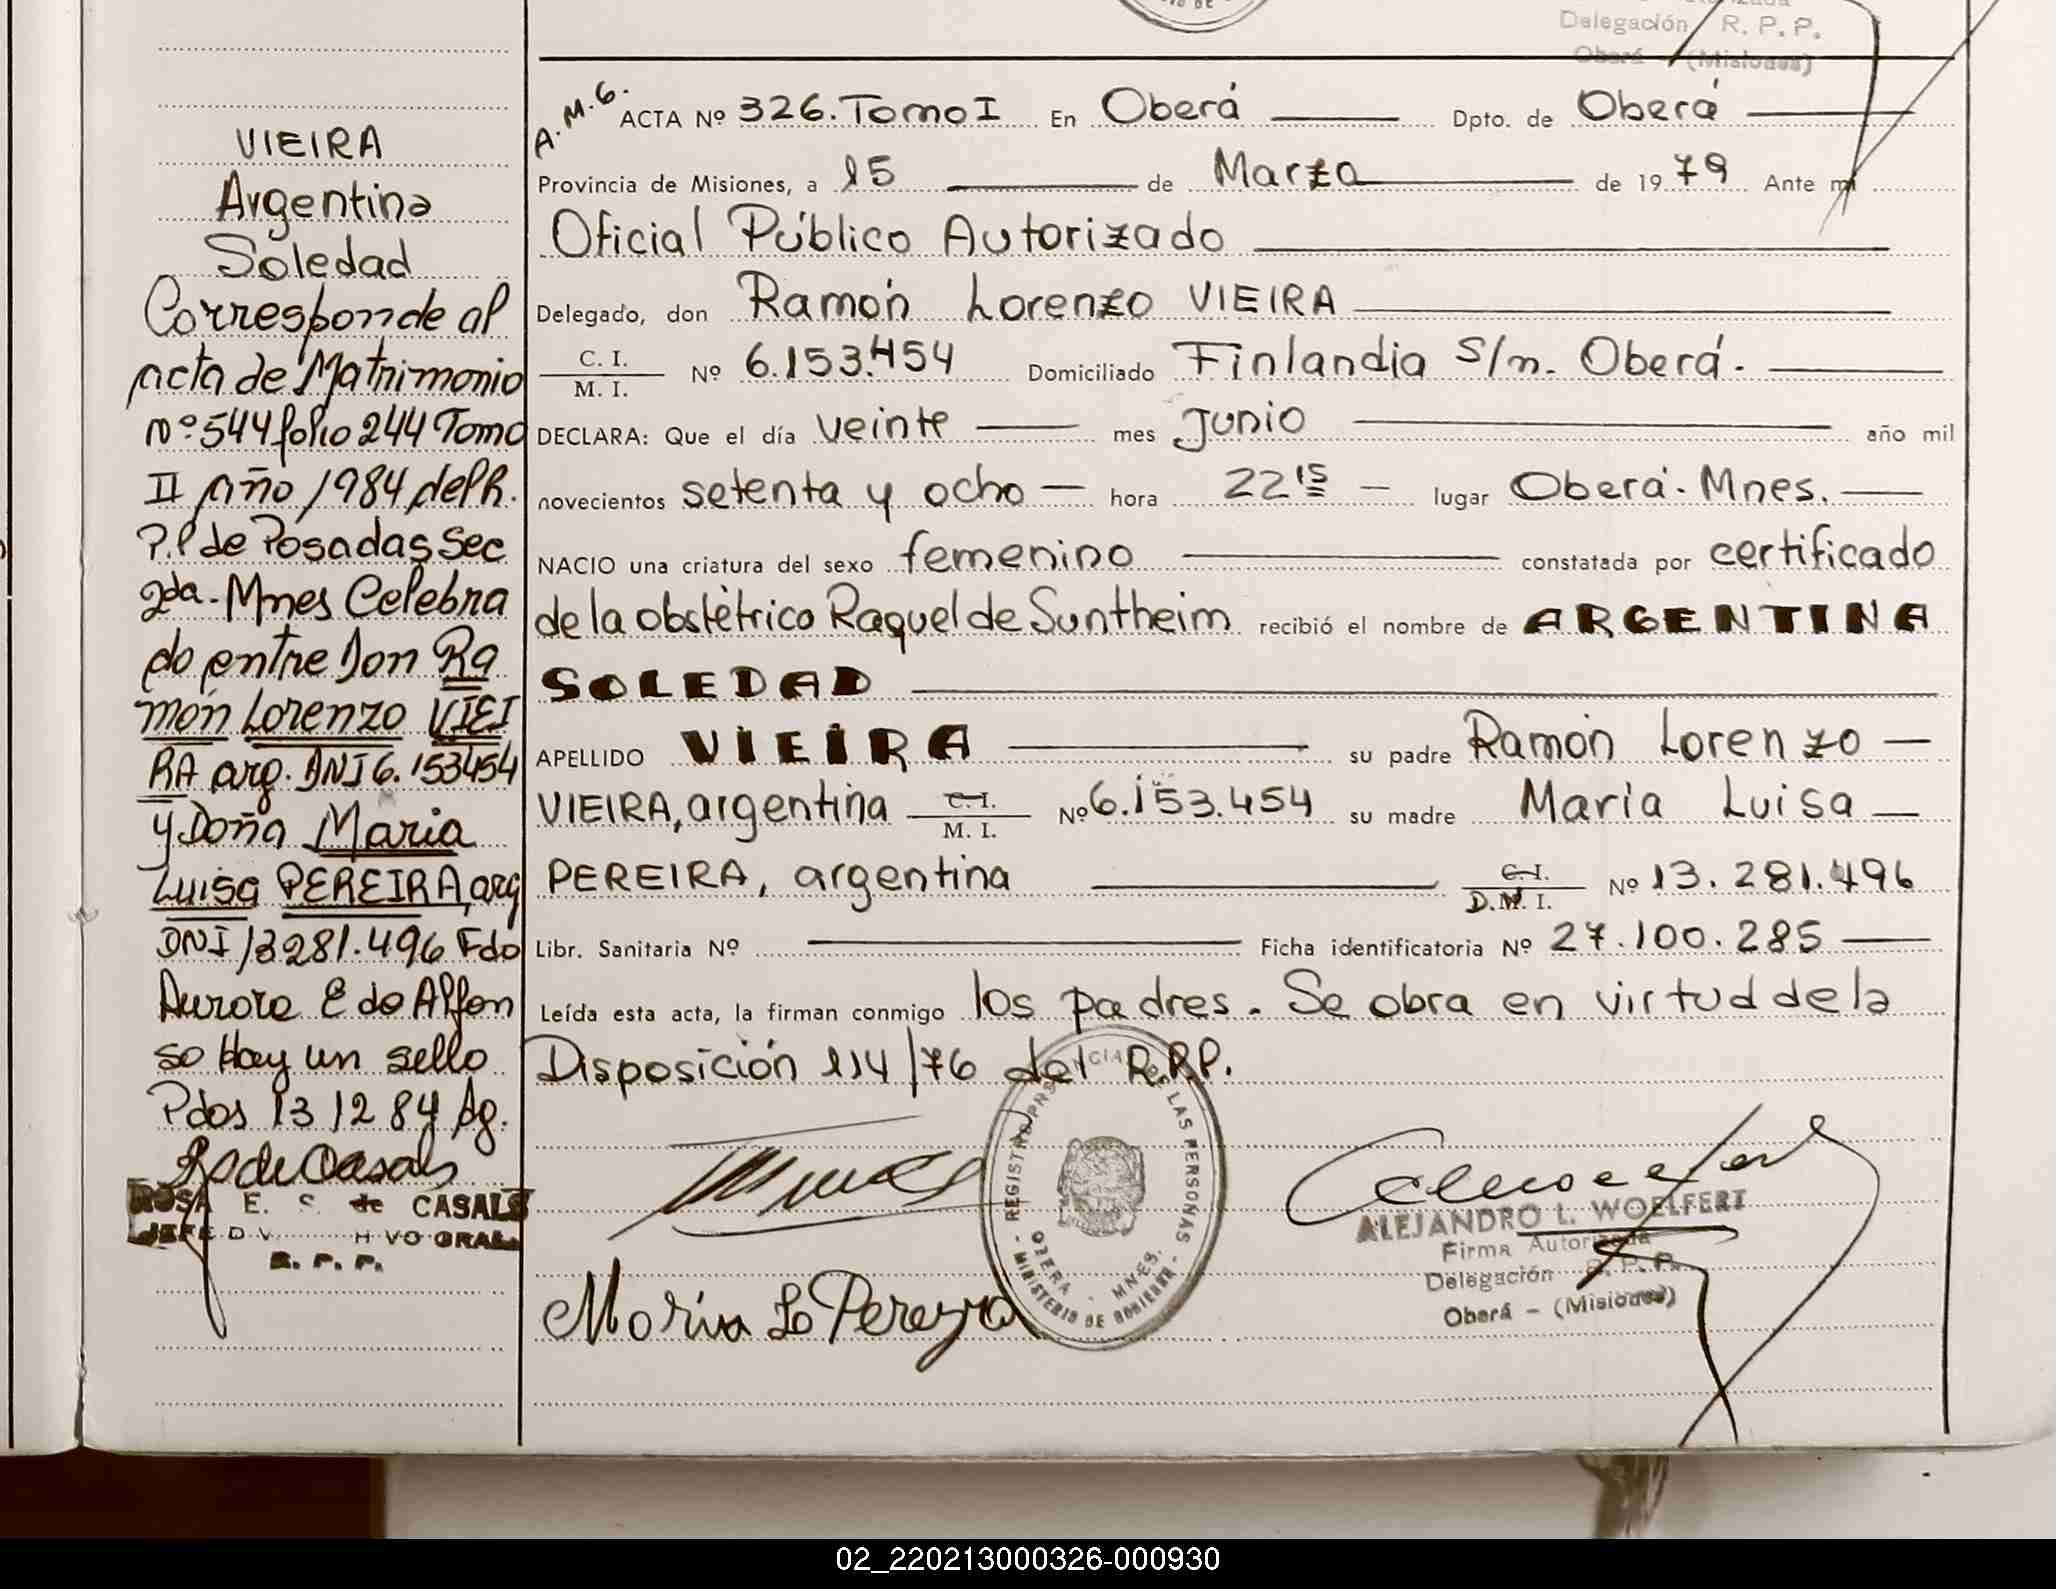 Delegación R. P. P.
Oberá (Misiones)
VIEIRA
Argentina
Soledad
Corresponde al
acta de Matrimonio
Nº 544 folio 244 Tomo
II año 1984 del R.
P.P de Posadas Sec
2da. Mnes Celebra
do entre Don Ra
món Lorenzo VIEI
RA arg. DNI 6.153454
y Doña Maria
Luisa PEREIRA, arg
DNI 13281.496 Fdo
Aurora E de Alfon
so Hay un sello
Pdos 13 12 84 Ag.
R de Casals
ROSA E. S. de CASALS
JEFE
R. P. P.
A.M.G. ACTA Nº 326. Tomo I En Oberá Dpto. de Oberá
Provincia de Misiones, a 15 de Marzo de 1979 Ante mí
Oficial Público Autorizado
Delegado, don Ramón Lorenzo VIEIRA
C. I. / M. I. Nº 6.153.454 Domiciliado Finlandia s/n. Oberá.
DECLARA: Que el día veinte mes junio año mil
novecientos setenta y ocho hora 22 15 lugar Oberá. Mnes.
NACIO una criatura del sexo femenino constatada por certificado
de la obstétrico Raquel de Suntheim recibió el nombre de ARGENTINA
SOLEDAD
APELLIDO VIEIRA su padre Ramón Lorenzo
VIEIRA, argentina C. I. / M. I. Nº 6.153.454 su madre Maria Luisa
PEREIRA, argentina C. I. / D.M. I. Nº 13.281.496
Libr. Sanitaria Nº Ficha identificatoria Nº 27.100.285
Leída esta acta, la firman conmigo los padres. Se obra en virtud de la
Disposición 114/76 del R.R.P.
REGISTRO PROVINCIAL DE LAS PERSONAS
OBERA - MNES.
MINISTERIO DE GOBIERNO
ALEJANDRO L. WOELFERT
Firma Autorizada
Delegación R. P. P.
Oberá - (Misiones)
Maria L Pereyra
02_220213000326-000930